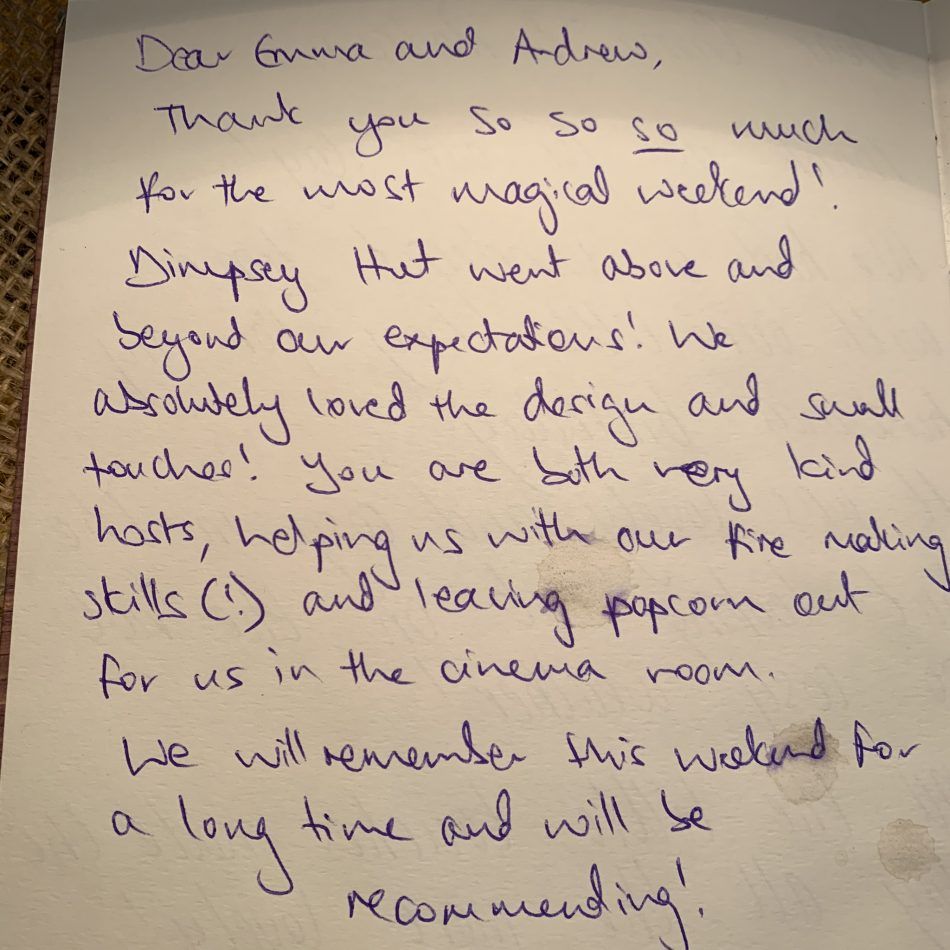 Dear Emma and Andrew,
Thank you so so so much
for the most magical weekend!
Dimpsey Hut went above and
beyond our expectations! We
absolutely loved the design and small
touches! You are both very kind
hosts, helping us with our fire making
skills (!) and leaving popcorn out
for us in the cinema room.
We will remember this weekend for
a long time and will be
recommending!